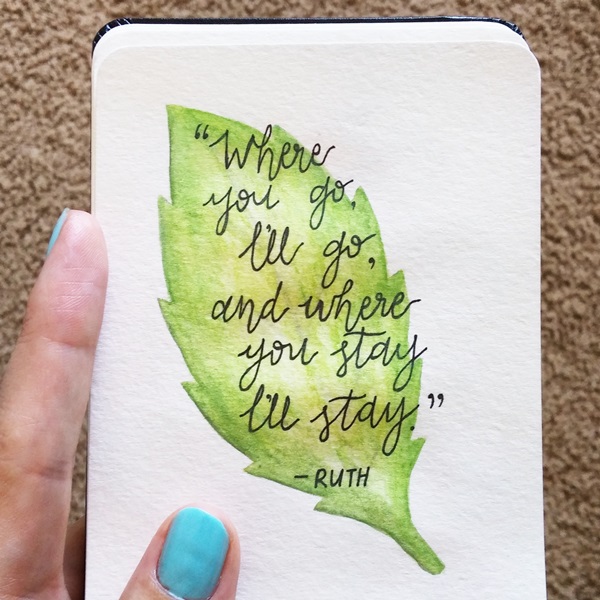 “Where
you go,
I'll go,
and where
you stay
I'll stay.”
-RUTH